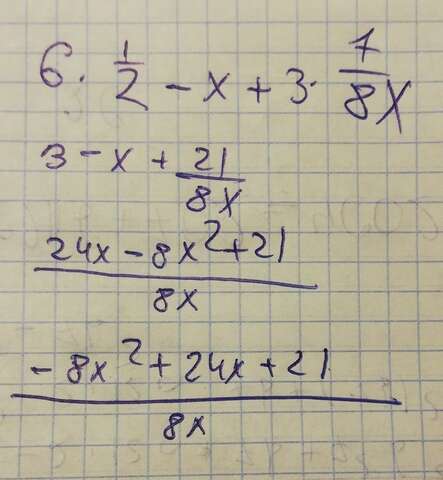 6 · 1/2 - x + 3 · 7/8x
3 - x + 21/8x
24x - 8x² + 21
8x
- 8x² + 24x + 21
8x